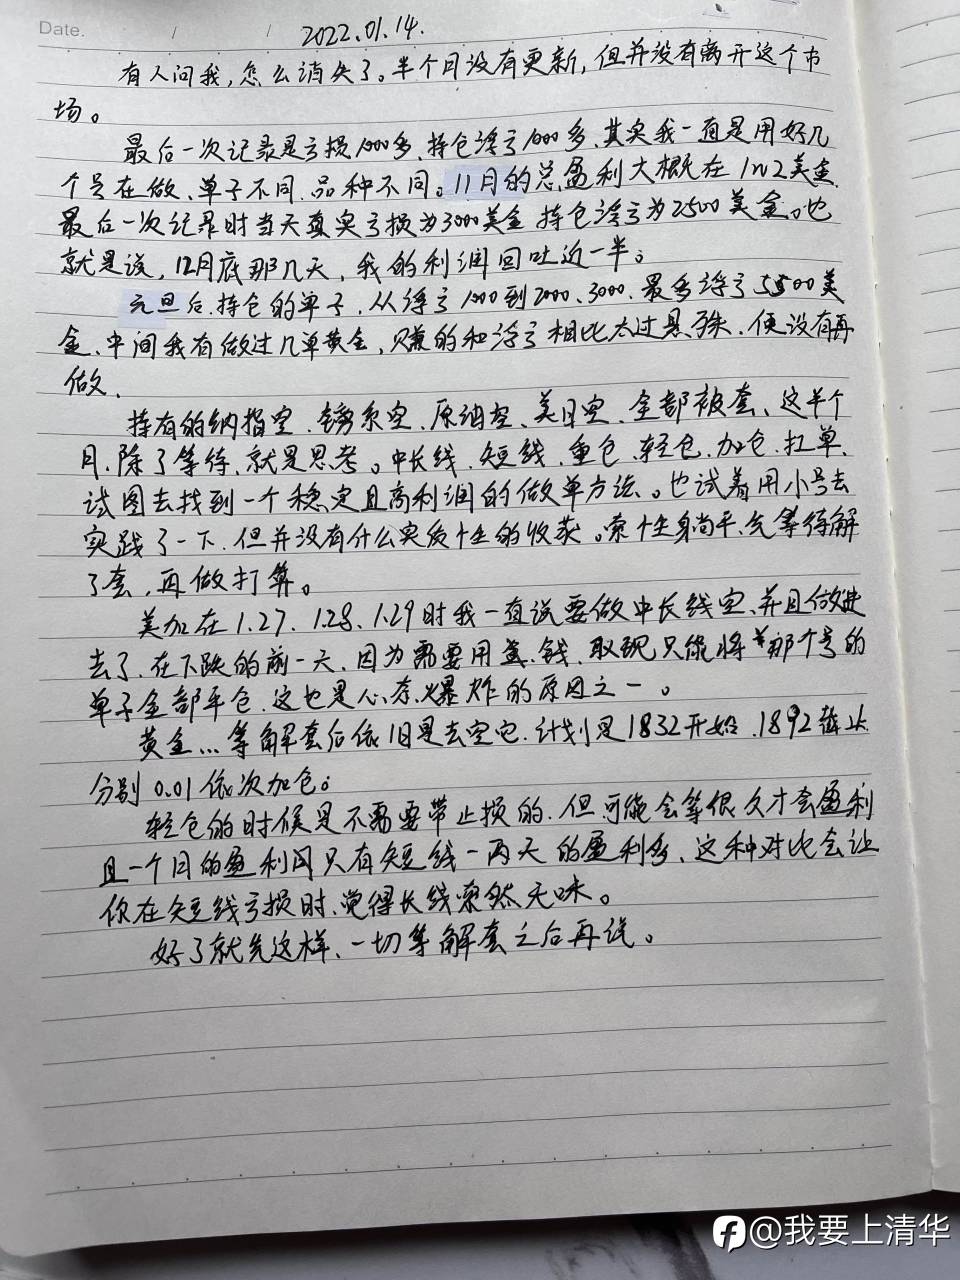 Date. / / 2022.01.14.
有人问我,怎么消失了。半个月没有更新,但并没有离开这个市
场。
最后一次记录是亏损1000多、持仓浮亏1000多、其实我一直是用好几
个号在做、单子不同.品种不同。11月的总盈利大概在1W2美金.
最后一次记录时当天真实亏损为3000美金 持仓浮亏为2500美金。也
就是说,12月底那几天,我的利润回吐近一半。
元旦后.持仓的单子.从浮亏1000到2000、3000.最多浮亏5500美
金、中间我有做过几单黄金,赚的和浮亏相比太过悬殊.便没有再
做、
持有的纳指空.镑系空.原油空、美日空、全部被套、这半个
月.除了等待、就是思考。中长线.短线.重仓、轻仓.加仓.扛单、
试图去找到一个稳定且高利润的做单方法。也试着用小号去
实践了一下.但并没有什么实质性的收获。索性躺平、先等待解
了套,再做打算。
美加在1.27、1.28、1.29时我一直说要做中长线空、并且做进
去了.在下跌的前一天.因为需要用钱.取现只能将那个号的
单子全部平仓.这也是心态爆炸的原因之一。
黄金...等解套后依旧是去空它.计划是1832开始.1892截止
分别0.01依次加仓。
轻仓的时候是不需要带止损的.但可能会等很久才会盈利
且一个月的盈利同只有短线一两天的盈利多、这种对比会让
你在短线亏损时、觉得长线索然无味。
好了就先这样、一切等解套之后再说。
@我要上清华